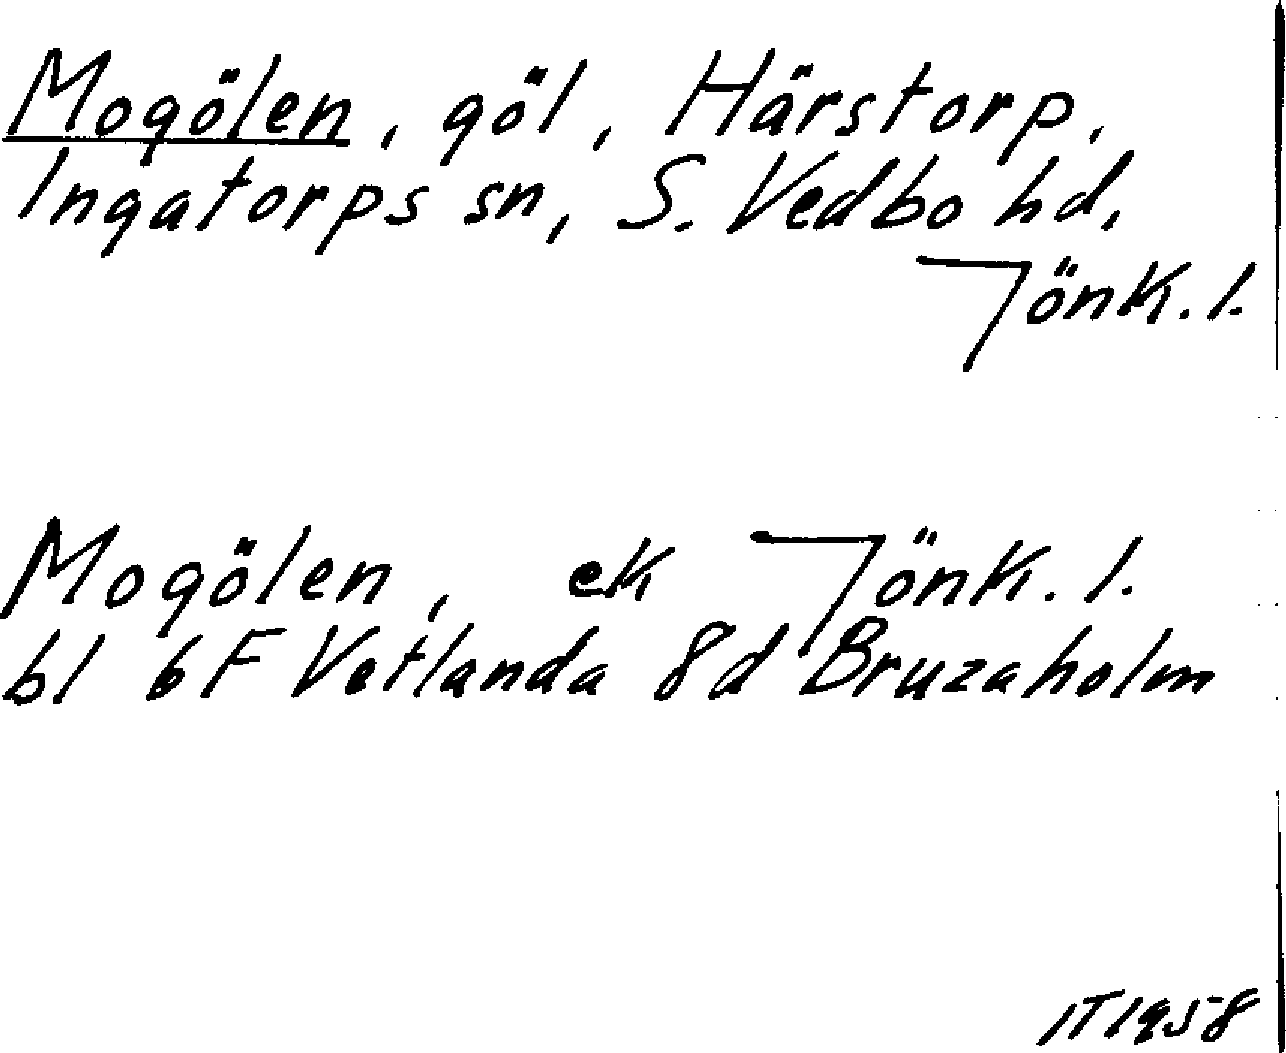 Mogölen, göl, Härstorp,
Ingatorps sn, S. Vedbo hd,
Jönk. l.
Mogölen, ek Jönk. l.
bl 6F Vetlanda 8d Bruzaholm
IT 1958